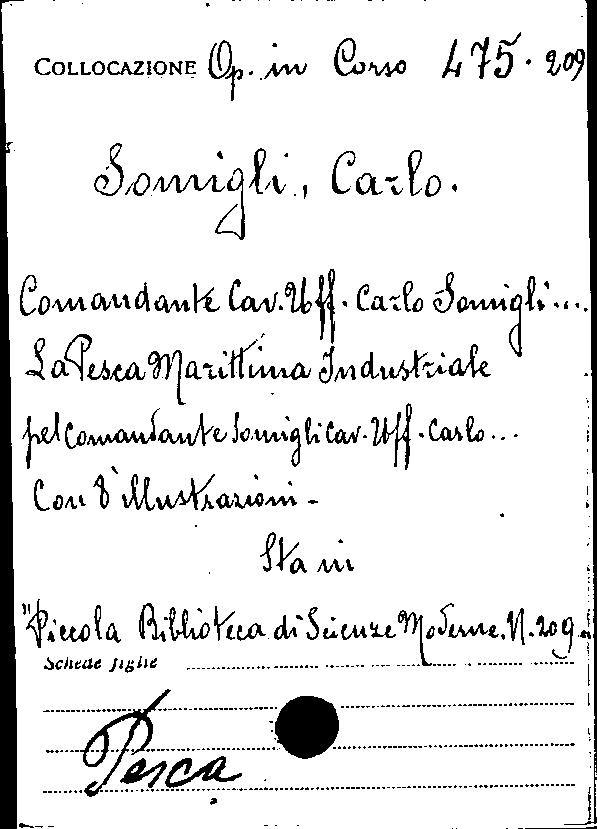 COLLOCAZIONE Op. in Corso 475. 209
Somigli, Carlo.
Comandante Cav. Uff. Carlo Somigli...
La Pesca Marittima Industriale
pel Comandante Somigli Cav. Uff. Carlo...
Con 8 illustrazioni -
Sta in
"Piccola Biblioteca di Scienze Moderne. N. 209
Schede figlie
Pesca